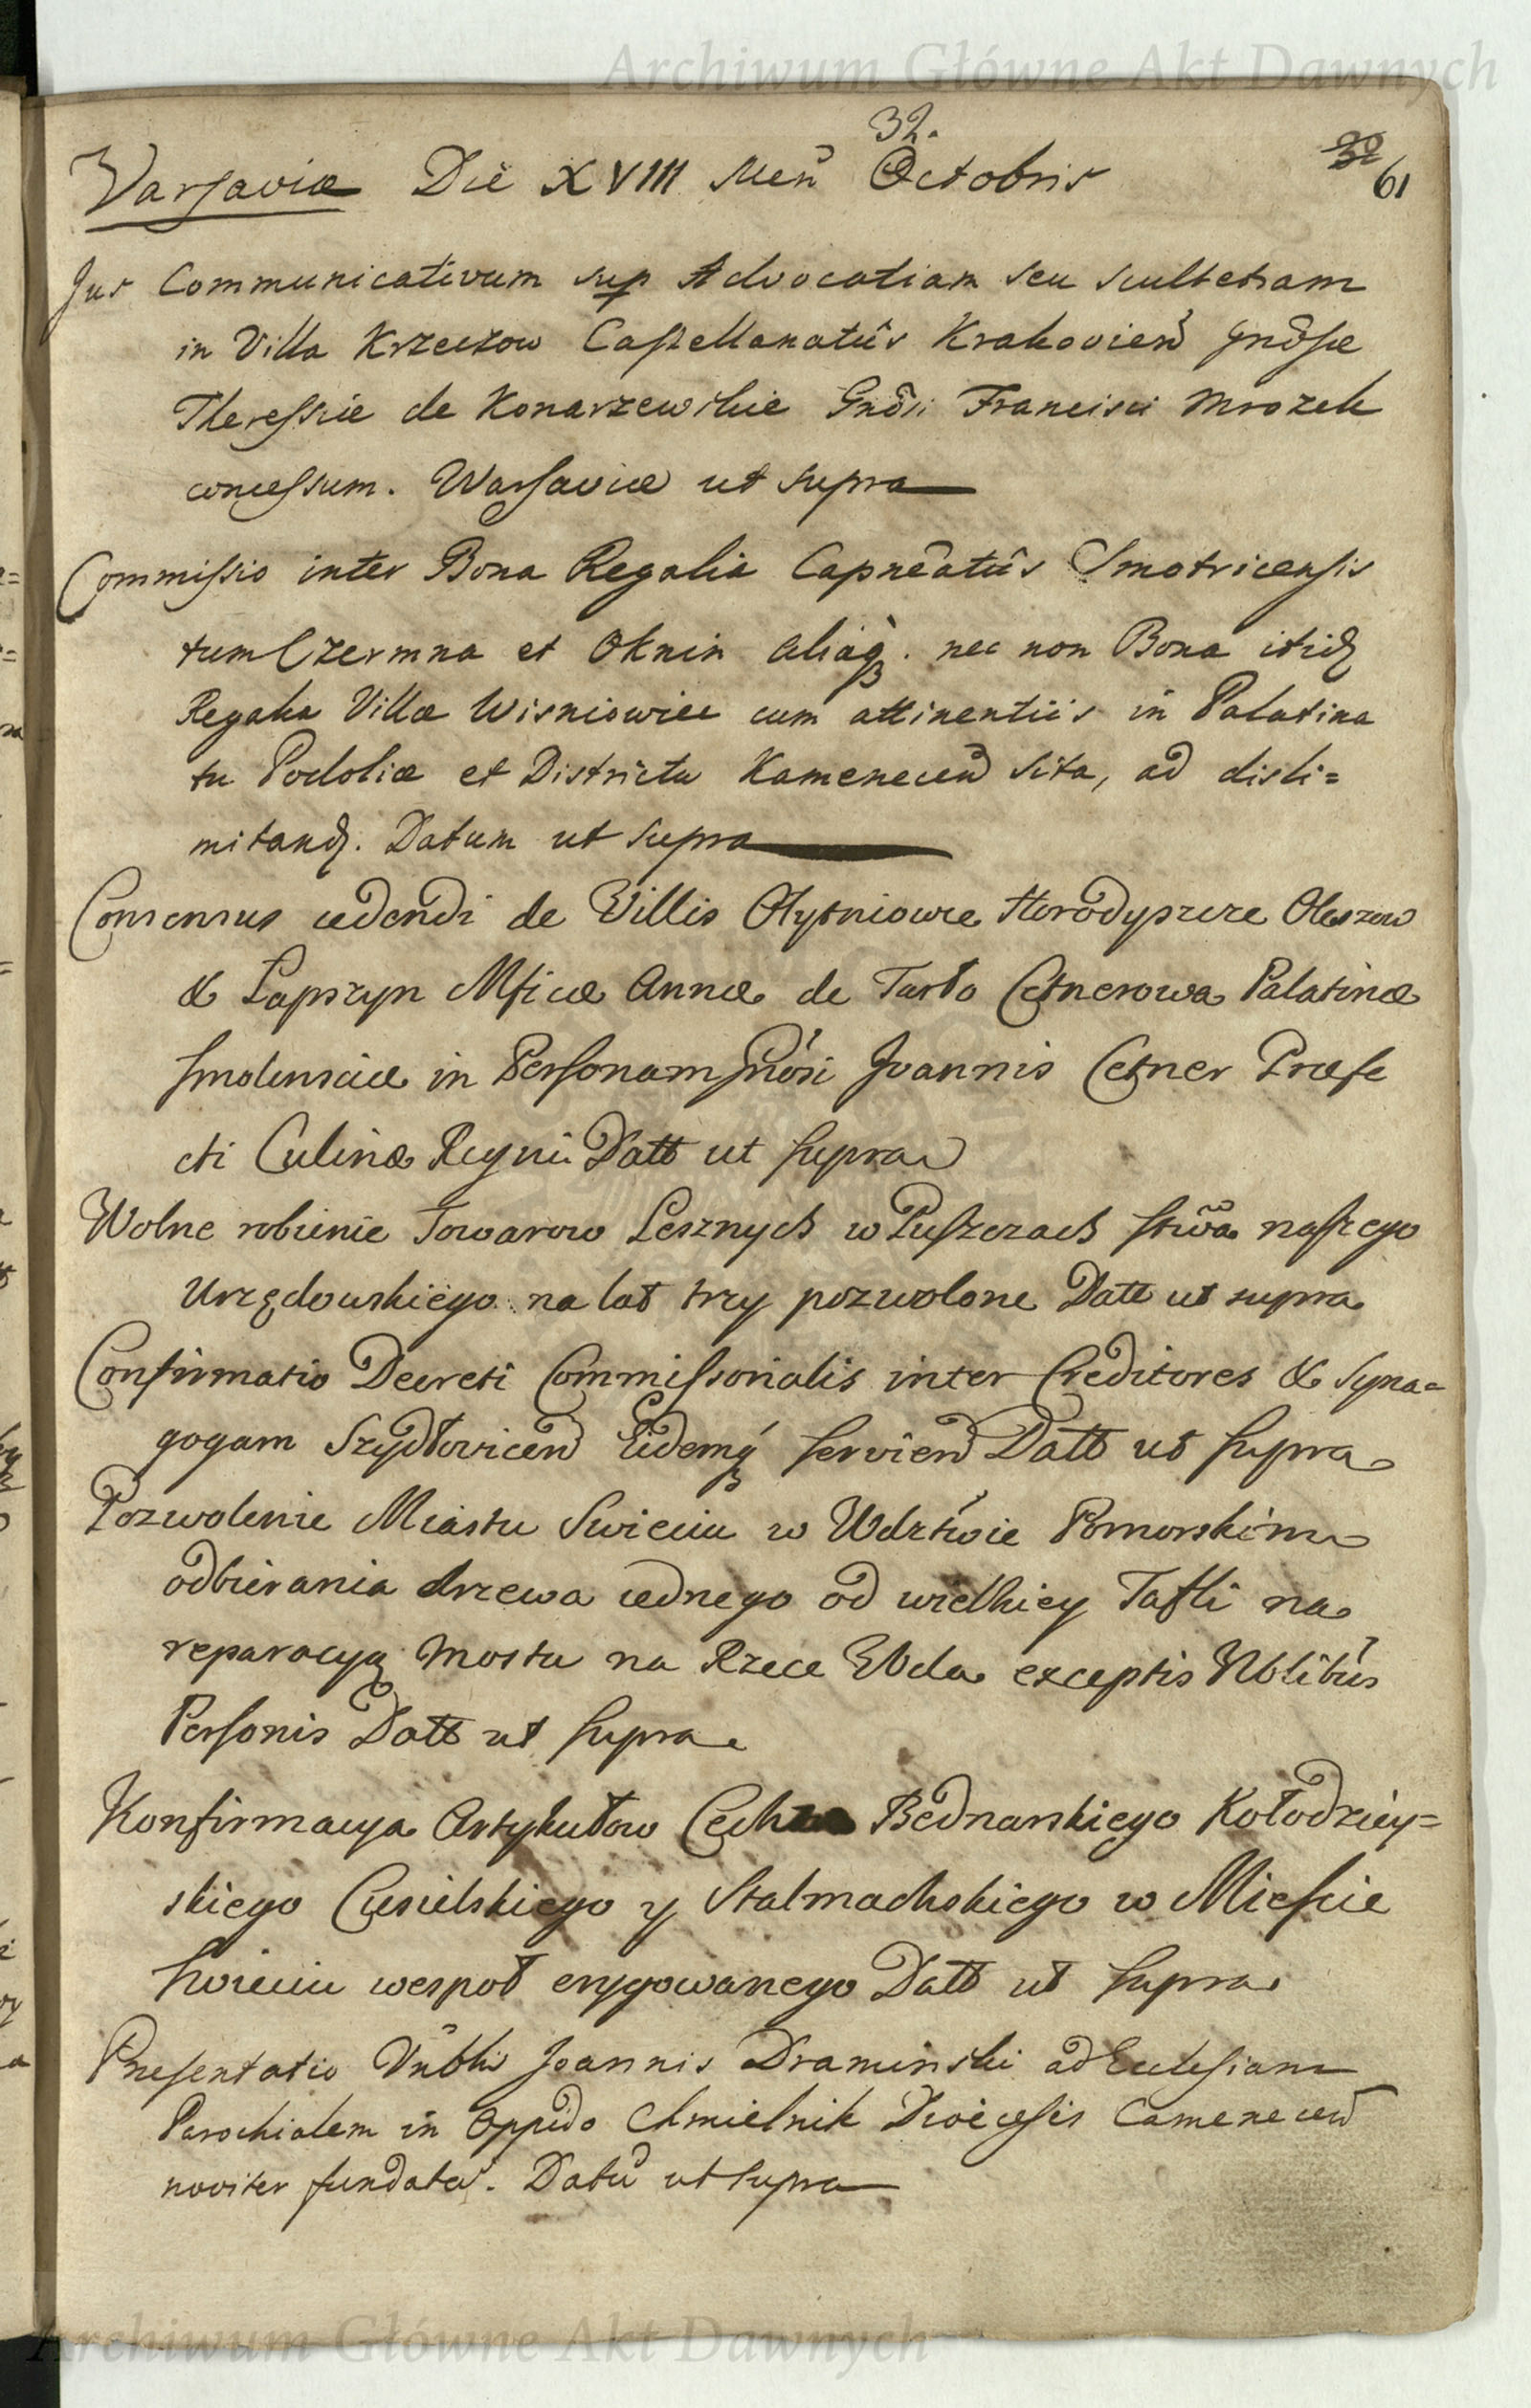 Archiwum Główne Akt Dawnych
32.
32
61
Varsaviæ Die XVIII Men Octobris
Jus Communicativum sup Advocatiam seu scultetiam
in Villa Krzeczow Castellanatûs Krakovien Gnosæ
Theressiæ de Konarzewskie Gnosi Francisci Mrozek
concessum. Warsaviæ ut supra
Commissio inter Bona Regalia Capneatûs Smotricensis
tum Czermna et Oknin aliaq. nec non Bona itid
Regalia Villæ Wisniowiec cum attinentiis in Palatina
tu Podoliæ et Districtu Kamenecen sita, ad disli=
mitand. Datum ut supra
Consensus cedendi de Villis Horodyszcze Oleszow
& Lapszyn Mficæ Annæ de Tarło Cetnerowa Palatinæ
Smolensciæ in Personam Gnosi Joannis Cetner Præfe
cti Culinæ Regni Datt ut supra
Wolne robienie Towarow Lesznych w Puszczach Stwa naszego
Urzędowskiego na lat trzy pozwolone Datt ut supra
Confirmatio Decreti Commissorialis inter Creditores & Syna=
gogam Szydłovicen Eidemq servien Datt ut supra
Pozwolenie Miastu Swieciu w Wdztwie Pomorskim
odbierania drzewa iednego od wielkiey Tafli na
reparacyą Mostu na Rzece Wda exceptis Nblibus
Personis Datt ut supra
Konfirmacya Artykułow Cechu Bednarskiego Kołodziey=
skiego Ciesielskiego y Stalmachskiego w Miescie
Swieciu wespoł erygowanego Datt ut supra
Præsentatio Vnblis Joannis Draminski ad Ecclesiam
Parochialem in Oppido Chmielnik Dioecesis Camenecen
noviter fundata. Datu ut supra
Archiwum Główne Akt Dawnych